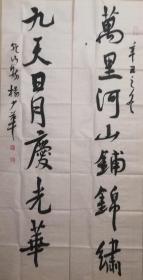 辛丑之冬
萬里河山鋪錦繡
九天日月慶光華
楊少華